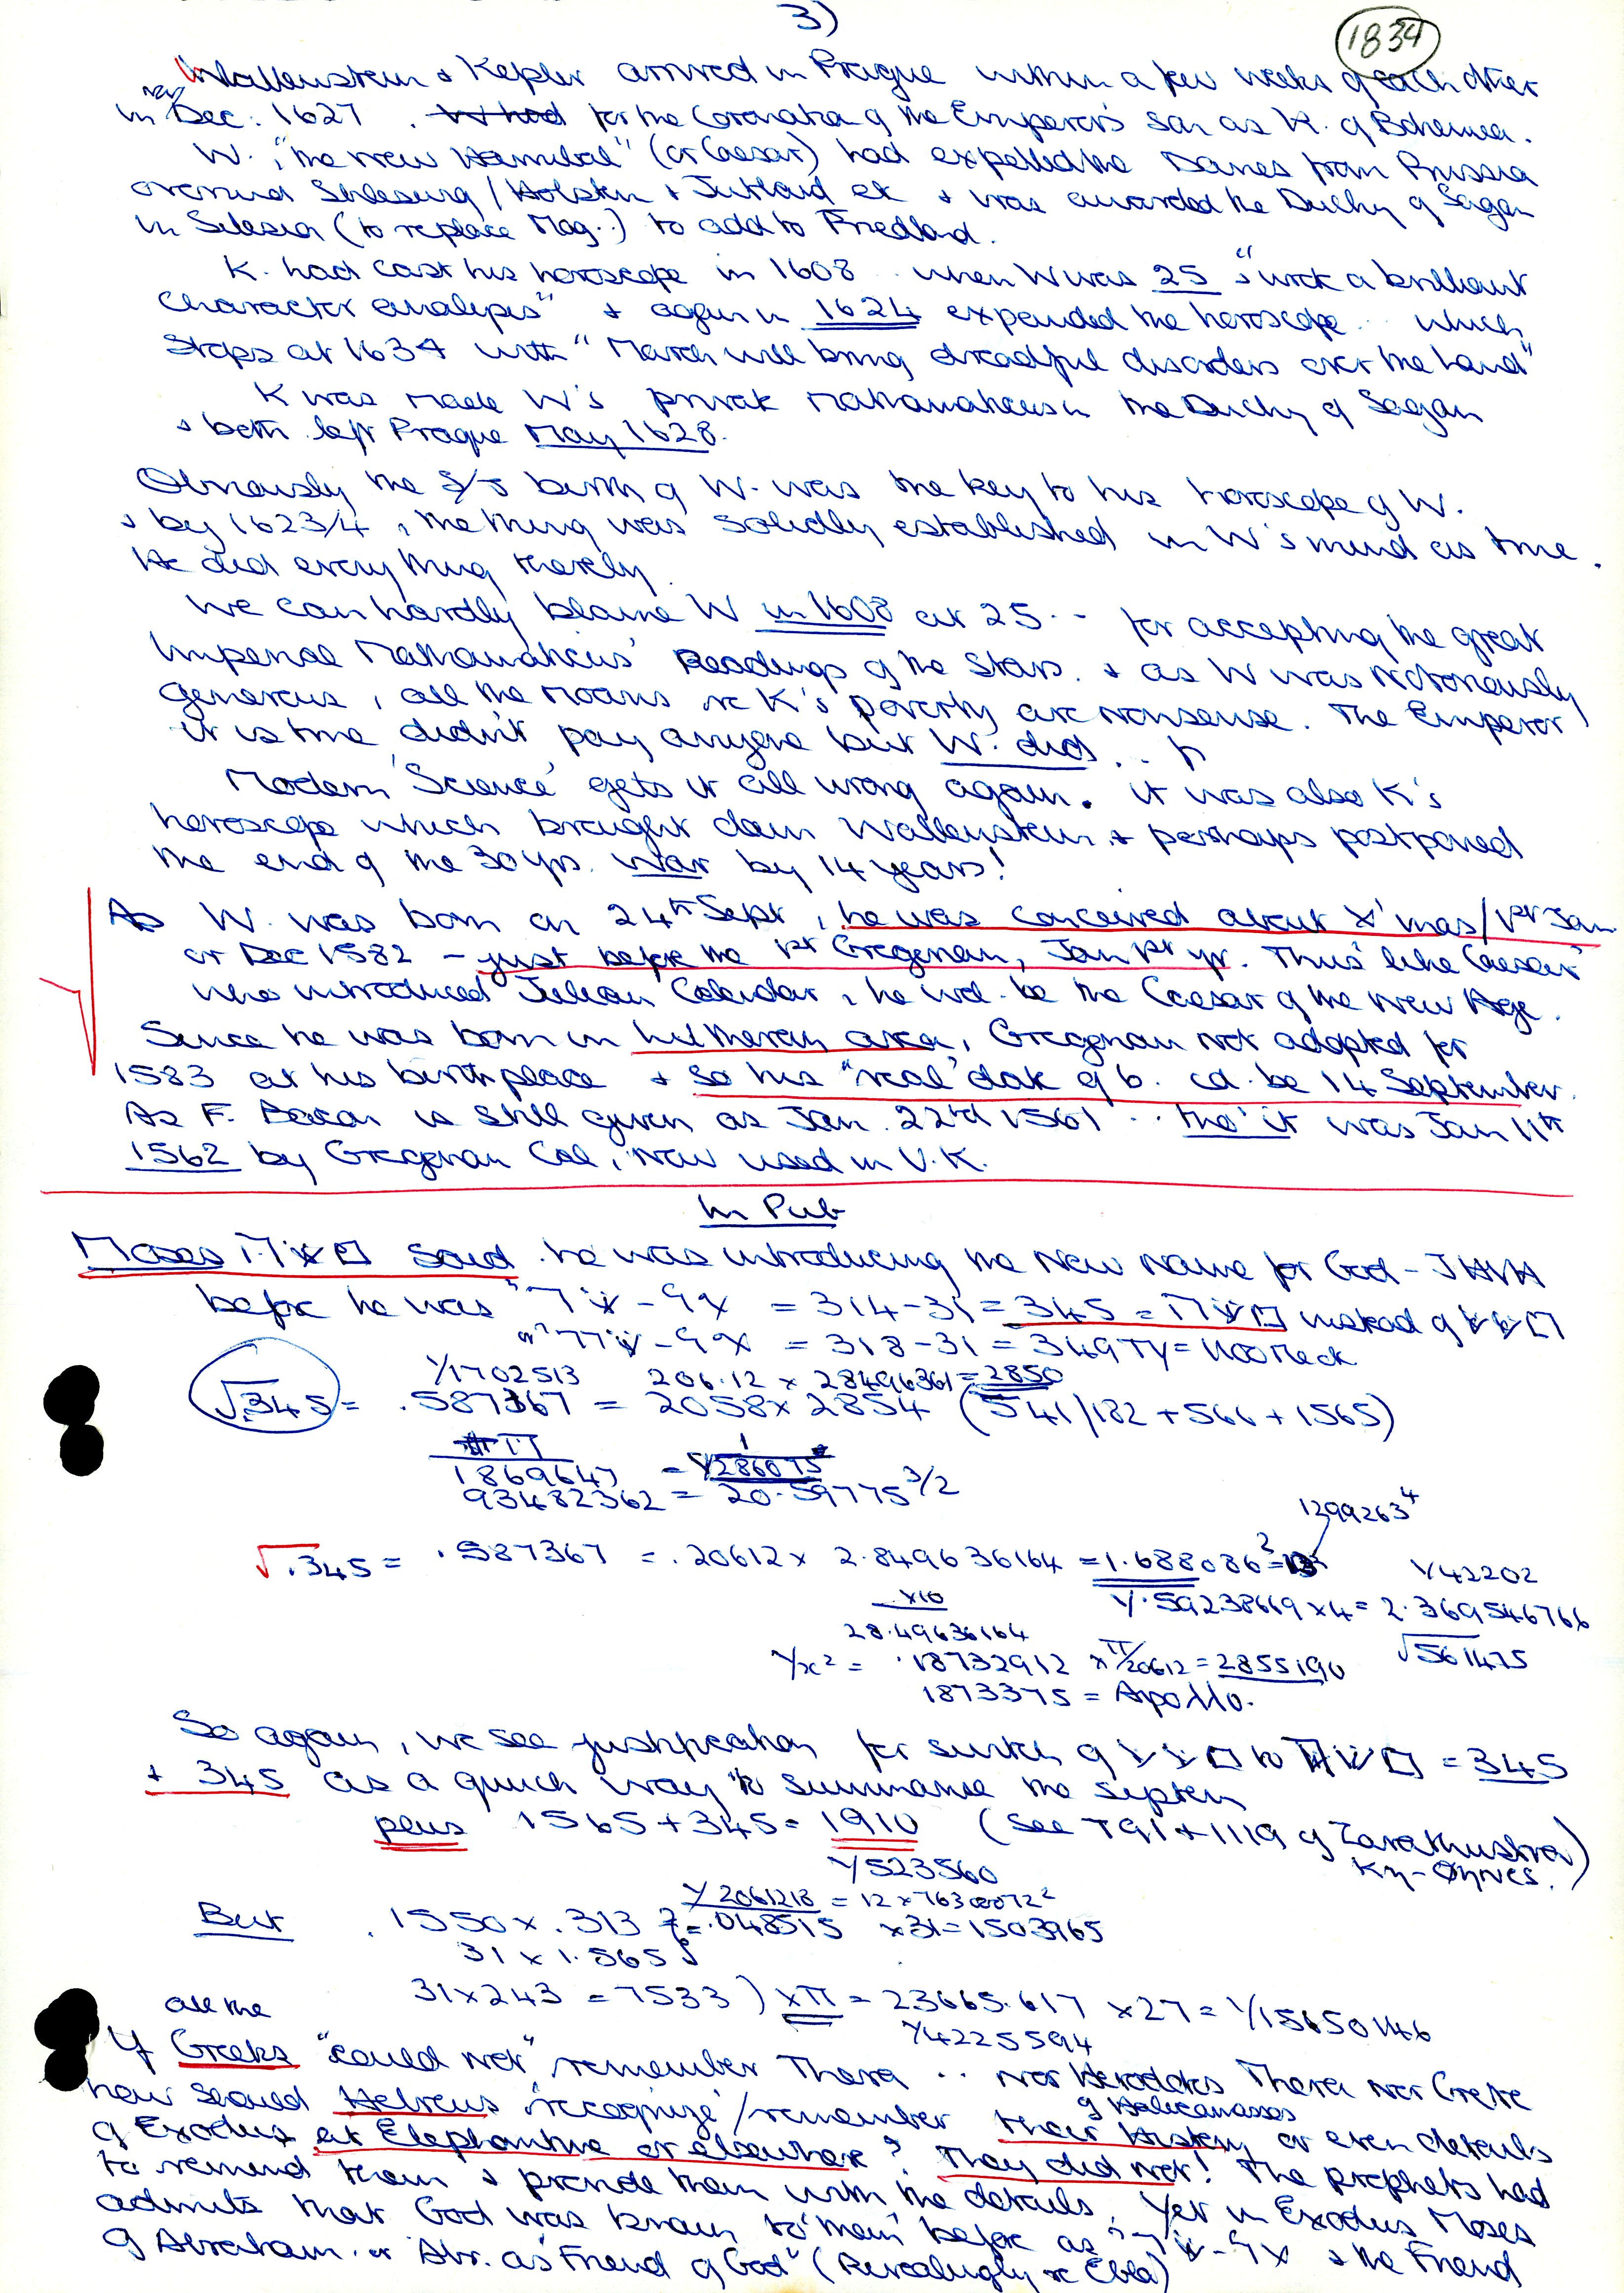 3)
1834
Wallenstein & Kepler arrived in Prague within a few weeks of each other
in Dec. 1627 . W had for the Coronation of the Emperor's son as K. of Bohemia.
W. "the New Hannibal" (or Caesar) had expelled the Danes from Prussia
overrund Schleswig / Holstein & Jutland etc & was awarded the Duchy of Sagan
in Silesia (to replace Mag..) to add to Friedland.
K. had cast his horoscope in 1608 .. when W was 25 & "wrote a brilliant
character analysis" & again in 1624 expanded the horoscope .. which
stops at 1634 with "March will bring dreadful disorders over the land"
K was made W's private Mathematicus in the Duchy of Sagan
& both left Prague May 1628.
Obviously the birth of W. was the key to his horoscope of W.
& by 1623/4, the thing was solidly established in W's mind as true.
He did everything thereby.
We can hardly blame W in 1608 at 25 .. for accepting the great
Imperial Mathematicus' Readings of the Stars. & as W was notoriously
generous, all the moans re K's poverty are nonsense. The Emperor
it is true didn't pay anyone but W. did ..
Modern 'Science' gets it all wrong again. it was also K's
horoscope which brought down Wallenstein & perhaps postponed
the end of the 30 yrs. War by 14 years!
As W. was born on 24th Sept, he was conceived about X'mas/1st Jan
or Dec 1582 - just before the 1st Gregorian, Jan 1st yr. Thus 'like Caesar'
who introduced Julian Calendar, he wd. be the Caesar of the New Age.
Since he was born in Lutheran area, Gregorian not adopted for
1583 at his birthplace & so his "real" date of b. cd. be 14 September.
As F. Bacon is still given as Jan. 22nd 1561 .. tho' it was Jan 11th
1562 by Gregorian Cal, now used in U.K.
In Pub
Moses said he was introducing the New Name for God - JHVH
before he was = 314-31 = 345 = instead of
= 318-31 = 349 = Noo Meck
1/1702513 206.12 x 28496361 = 2850
√.345 = .587367 = 2058 x 2854 (541/182 + 566 + 1565)
1869647 = 1/286075
93482362 = 20.59775 3/2
1299263 4
√.345 = .587367 = .20612 x 2.849636164 = 1.688086 2
1/42202
1/.59238669 x 4 = 2.369546766
x10
28.49636164
√561475
1/x² = .18732912 x π/20612 = 2855190
1873375 = Apollo.
So again, we see justification for switch of to = 345
& 345 as a quick way to summarise the system
plus 1565 + 345 = 1910 (see T91 + 1119 of Zarathustra)
1/523560
1/2061218 = 12 x 7630072 2
But . 1550 x .313 = .048515 x 31 = 1503965
31 x 1.565
31 x 243 = 7533 ) x π = 23665.617 x 27 = 1/15650146
1/4225594
all the
If Greeks "could not" remember Thera .. nor Herodotus Thera nor Crete
of Halicarnassos
how should Hebrews 'recognize'/remember their History or even details
of Exodus at Elephantine or elsewhere? They did not! The prophets had
to remind them & provide them with the details. Yet in Exodus Moses
admits that God was known to 'men' before as & the Friend
of Abraham. or Abr. as "Friend of God" (Revealingly re Ebla)